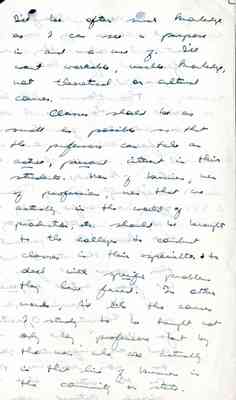 I'd be after such knowledge
as I can see a purpose
in and a use of. I'd
want workable, usable knowledge,
not theoretical or cultural
courses.
Classes should be as
small as possible so that
the professors can take an
active, personal interest in their
students. Men of business, men
of professions, men that are
actually in the world of
production, etc. should be brought
to the college to conduct
classes in their specialties & to
deal with specific problems
they have faced. In other
words, I'd like the courses
I study to be taught not
only by professors but by
the men who are actually
in that line of business in
the community or state.